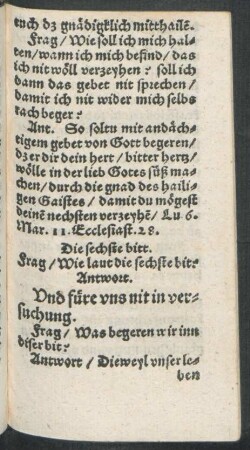 euch dz gnädigklich mitthailē.
Frag / Wie soll ich mich hal-
ten / wann ich mich befind / das
ich nit wöll verzeyhen? soll ich
dann das gebet nit sprechen /
damit ich nit wider mich selbs
rach beger?
Ant. So soltu mit andäch-
tigem gebet von Gott begeren /
dz er dir dein hert / bitter hertz /
wölle in der lieb Gotes süß ma-
chen / durch die gnad des haili-
gen Gaistes / damit du mögest
deinē nechsten verzeyhē / Lu 6.
Mar. 11. Ecclesiast. 28.
Die sechste bitt.
Frag / Wie laut die sechste bit?
Antwort.
Vnd füre vns nit in ver-
suchung.
Frag / Was begeren wir inn
diser bit?
Antwort / Dieweyl vnser le-
ben